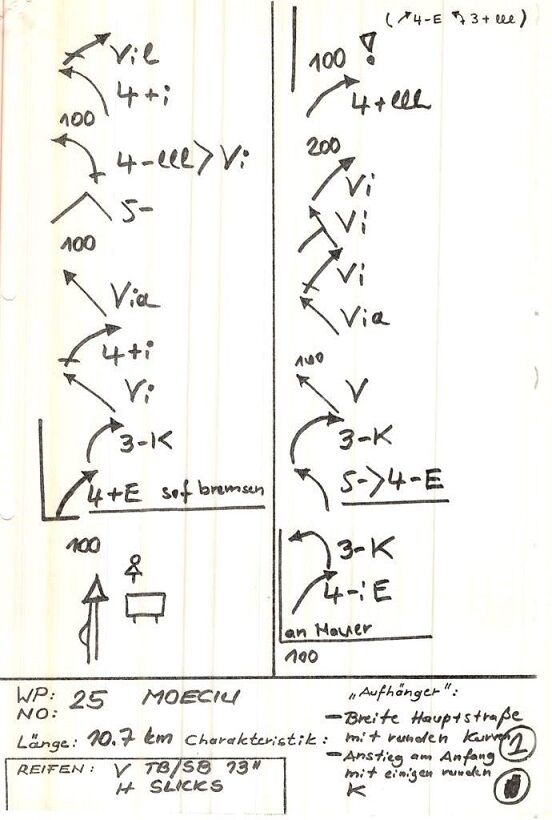 Vil
4+i
100
4-lll > Vi
5-
100
Via
4+i
Vi
3-K
4+E sof bremsen
100
(4-E 3+lll)
100 !
4+lll
200
Vi
Vi
Vi
Via
100
V
3-K
5->4-E
3-K
4-iE
an Mauer
100
WP: 25 MOECIU
NO:
Länge: 10.7 km Charakteristik:
REIFEN: V TB/SB 13"
H SLICKS
„Aufhänger":
- Breite Hauptstraße
mit runden Kurven
- Anstieg am Anfang
mit einigen runden
K
1